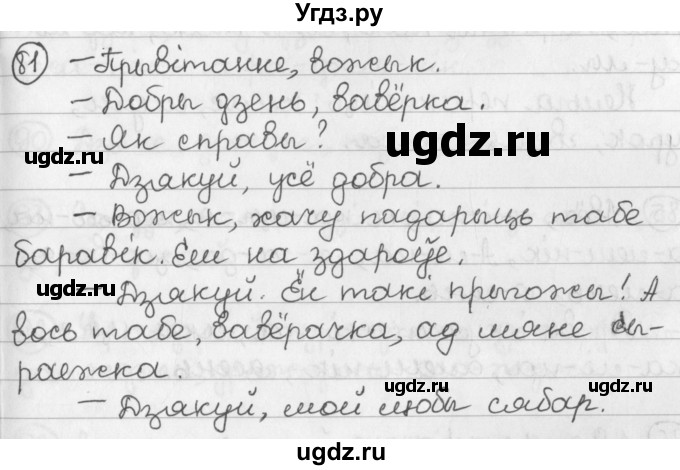 Угдз.ру
81 – Прывітанне, вожык.
– Добры дзень, вавёрка.
– Як справы?
– Дзякуй, усё добра.
– Вожык, хачу падарыць табе
баравік. Еш на здароўе.
– Дзякуй. Ён такі прыгожы! А
вось табе, вавёрачка, ад мяне сы-
раежка.
– Дзякуй, мой любы сябар.
ugdz.ru
ugdz.ru
ugdz.ru
ugdz.ru
ugdz.ru
ugdz.ru
ugdz.ru